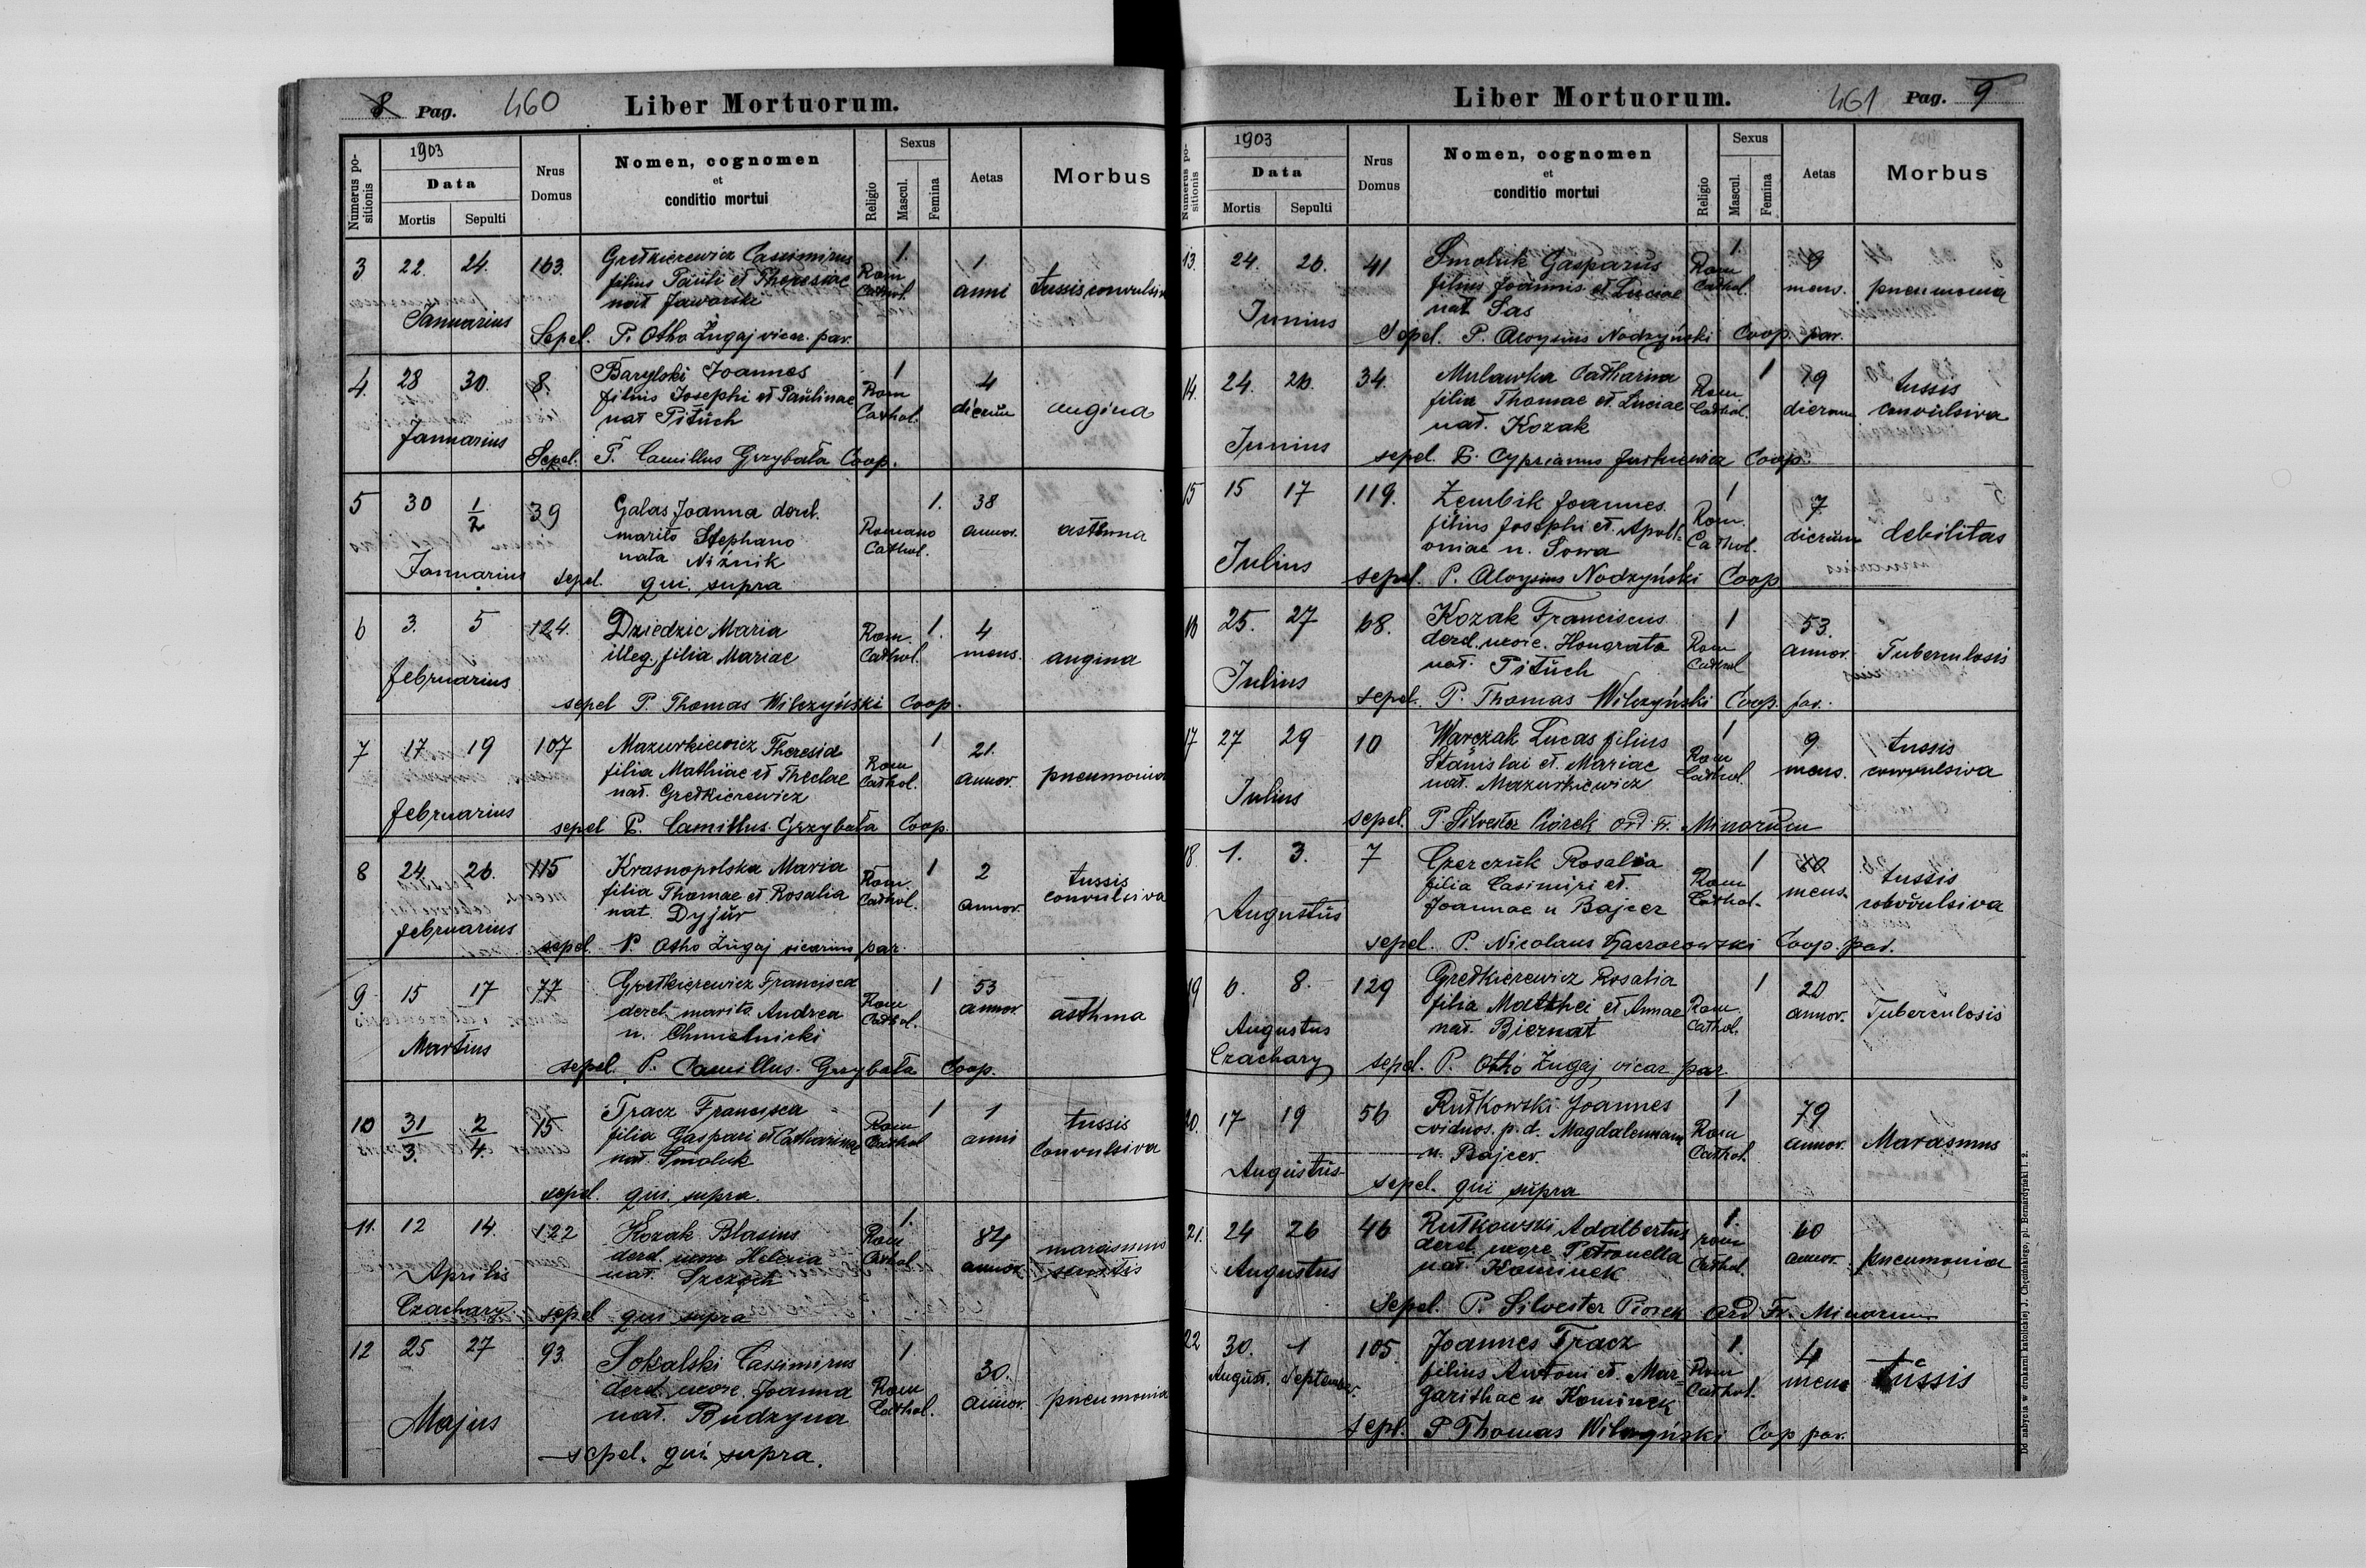 8 Pag. 460 Liber Mortuorum.
Numerus positionis
1903
Data
Mortis Sepulti
Nrus Domus
Nomen, cognomen
et
conditio mortui
Religio
Sexus
Mascul. Femina
Aetas
Morbus
3 22. 24. 163. Gretkierewicz Cassimirus 1. 1
filius Pauli et Theresiae Rom anni tussis convulsiva
nat Jaworski Cathol.
Januarius
Sepel. P. Otho Żugaj vicar. par.
4. 28 30. 8. Barylski Joannes 1 4
filius Josephi et Paulinae Rom dierum angina
nat Pituch Cathol.
Januarius
Sepel. P. Camillus Grzybała Coop.
5 30 1/2 39 Galas Joanna derel. 1. 38
marito Stephano Romano annor. asthma
nata Niźnik Cathol.
Januarius sepel. qui supra
6 3. 5 124. Dziedzic Maria Rom. 1. 4
illeg. filia Mariae Cathol. mens. angina
februarius
sepel P. Thomas Wilczyński Coop.
7 17 19 107 Mazurkiewicz Theresia 1 21.
filia Mathiae et Theclae Rom annor. pneumonia
nat. Gretkierewicz Cathol.
februarius
sepel P. Camillus Grzybała Coop.
8 24. 26. 115 Krasnopolska Maria 1 2 tussis
filia Thomae et Rosalia Rom. annor. convulsiva
nat. Dyjur Cathol.
februarius
sepel. P. Otho Żugaj vicarius par.
9 15 17 77 Gretkierewicz Francisca 1 53
derel. marito Andrea Rom annor. asthma
n. Chmielnicki Cathol.
Martius
sepel. P. Camillus Grzybała Coop.
10 31/3. 2/4. 15 Tracz Francisca 1 1 tussis
filia Gaspari et Catharinae Rom anni convulsiva
nat. Smoluk Cathol
sepel. qui supra.
11. 12 14. 122 Kozak Blasius 1. 84 marasmus
derel. uxore Helena Rom annor.
nat. Cathol
Aprilis
Czachary sepel qui supra
12 25 27 93. Sokalski Cassimirus 1 30.
derel. uxore. Joanna Rom annor. pneumonia
nat. Budzyna Cathol.
Majus
sepel. qui supra.
Liber Mortuorum. 461 Pag. 9
Numerus positionis
1903
Data
Mortis Sepulti
Nrus Domus
Nomen, cognomen
et
conditio mortui
Religio
Sexus
Mascul. Femina
Aetas
Morbus
13. 24. 26. 41 Smoluk Gasparus 1.
filius Joannis et Luciae Rom mens. pneumonia
nat Sas Cathol.
Junius
Sepel. P. Aloysius Nodzyński Coop. par.
14. 24. 26. 34. Mulawka Catharina 1 19 tussis
filia Thomae et Luciae Rom. dierum convulsiva
nat. Kozak Cathol.
Junius
sepel. P. Cyprianus Coop.
15 15 17 119. Zembik Joannes 1 7
filius Josephi et Apoll- Rom. dierum debilitas
oniae n. Sowa Cathol.
Julius
sepel. P. Aloysius Nodzyński Coop
16 25. 27 68. Kozak Franciscus 1 53.
derel. uxore. Honorata Rom annor. Tuberculosis
nat. Pituch Cathol
Julius
sepel. P. Thomas Wilczyński Coop. par.
17 27 29 10 Warczak Lucas filius 1 9 tussis
Stanislai et Mariae Rom mens. convulsiva
nat. Mazurkiewicz Cathol.
Julius
sepel. P. Silvester Piorek Ord. Fr. Minorum
18. 1. 3. 7 Czerczuk Rosalia 1 10 tussis
filia Casimiri et. Rom mens. convulsiva
Joannae n Bajcer Cathol.
Augustus
sepel. P. Nicolaus Coop. par.
19 6. 8. 129 Gretkierewicz Rosalia 1 20
filia Matthei et Annae Rom. annor. Tuberculosis
nat. Biernat Cathol.
Augustus
Czachary sepel. P. Otho Żugaj vicar par
20. 17 19 56 Rutkowski Joannes 1 79
viduos. p. d. Magdalenam Rom annor. Marasmus
n. Bajcer. Cathol.
Augustus
sepel. qui supra
21. 24 26 46 Rutkowski Adalbertus 1. 60
derel. uxore Petronella rom annor. pneumonia
nat. Kominek Cathol.
Augustus
Sepel. P. Silvester Piorek Ord Fr. Minorum
22 30. 1 105. Joannes Tracz 1. 4
August. September. filius Antoni et. Mar- Rom mens tussis
garithae n Kominek Cathol.
sepel. P Thomas Wilczyński Cop par.
Do nabycia w drukarni katolickiej J. Chęcińskiego, pl. Bernardyński l. 2.